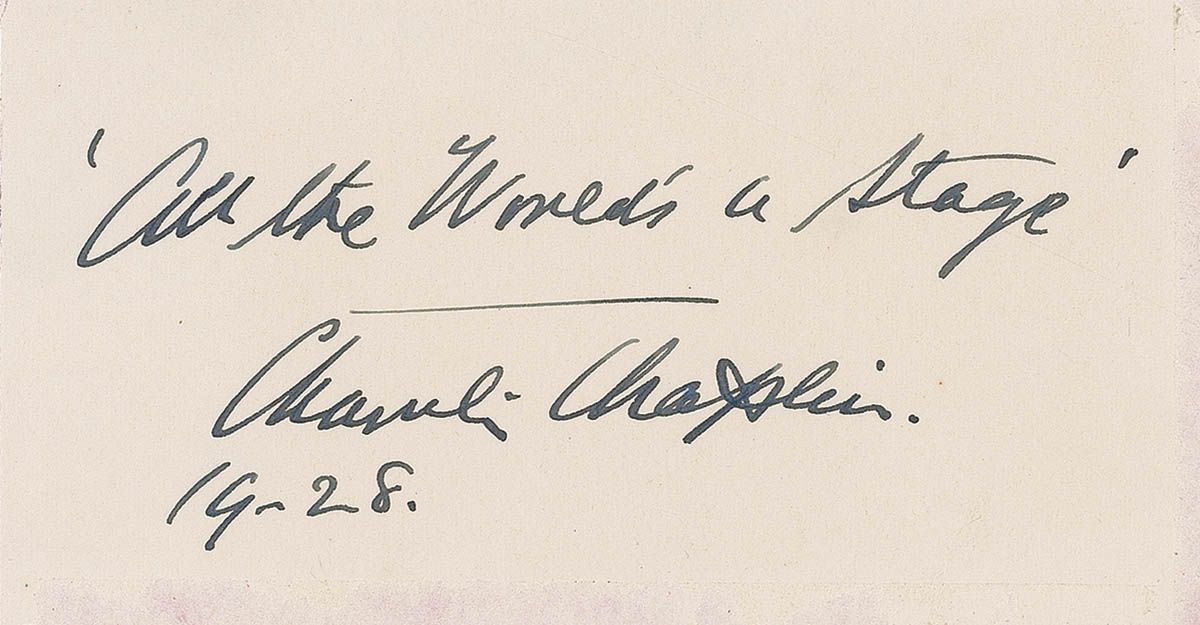 'All the World's a Stage'
Charlie Chaplin.
19-28.